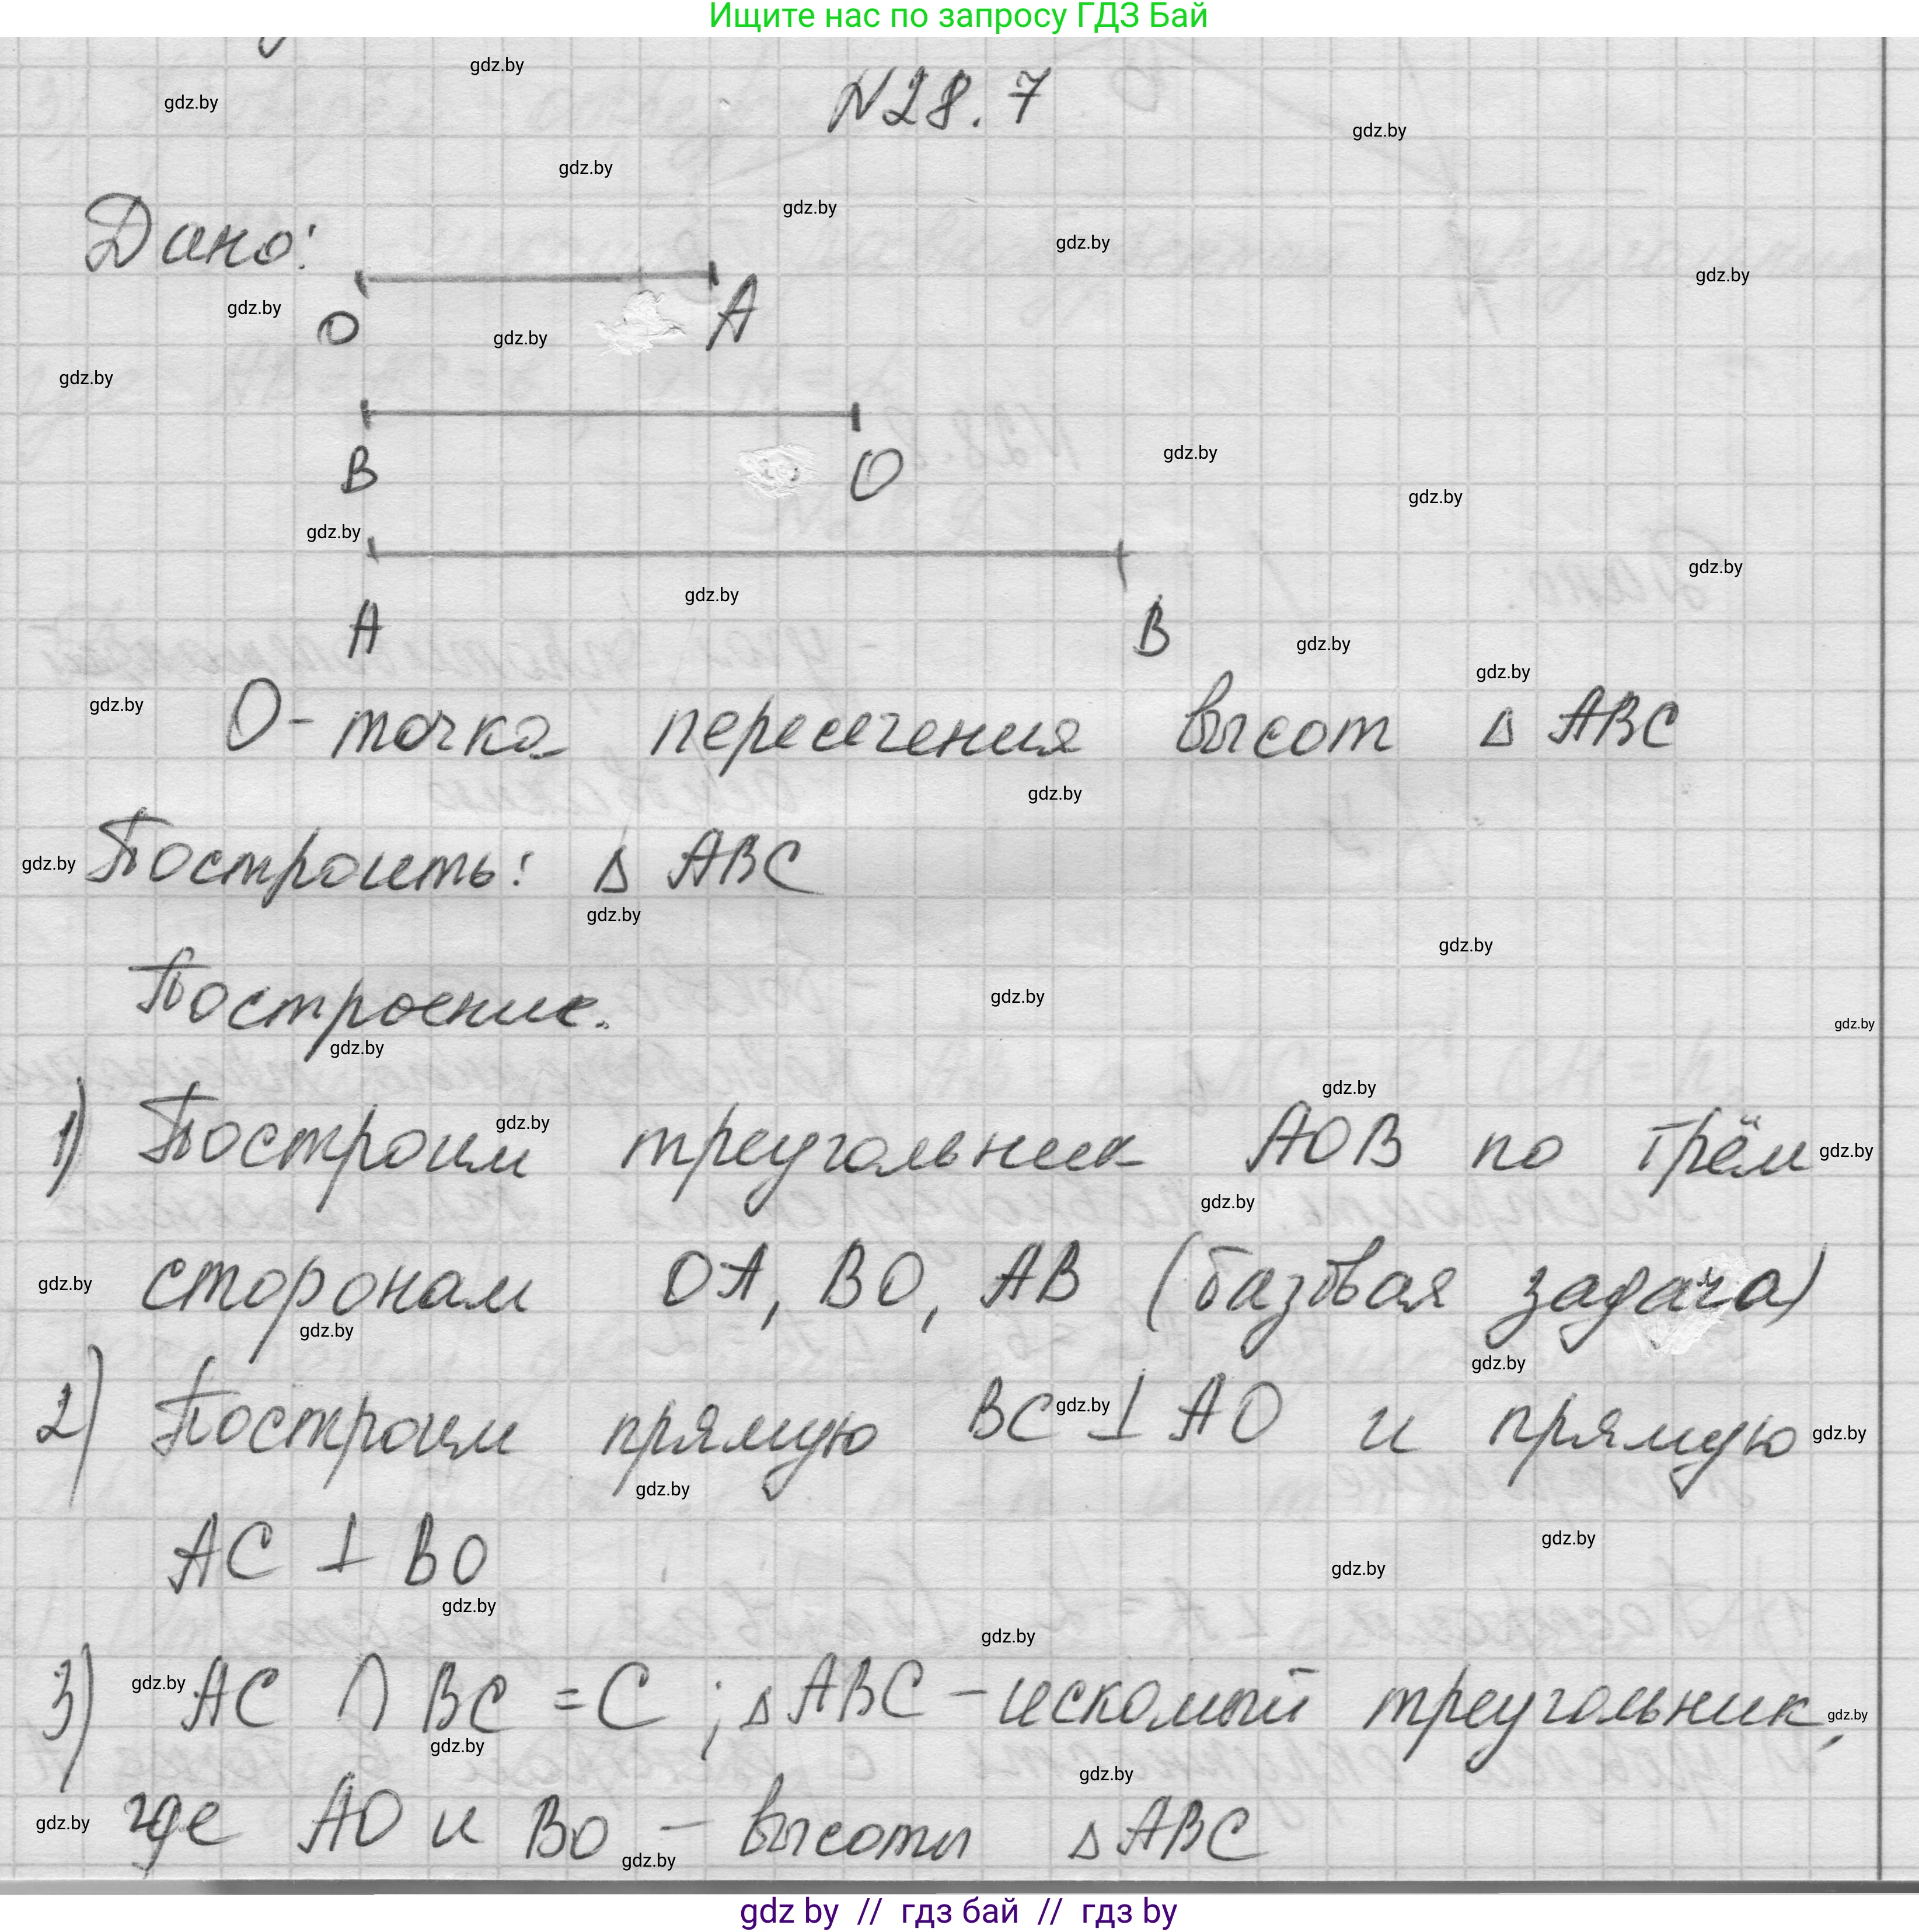 Ищите нас по запросу ГДЗ Бай
N28.7
Дано:
O A
B O
A B
O - точка пересечения высот Δ ABC
Построить: Δ ABC
Построение.
1) Построим треугольник AOB по трём
сторонам OA, BO, AB (базовая задача)
2) Построим прямую BC ⊥ AO и прямую
AC ⊥ BO
3) AC ∩ BC = C ; Δ ABC - искомый треугольник,
где AO и BO - высоты Δ ABC
gdz by // гдз бай // гдз by